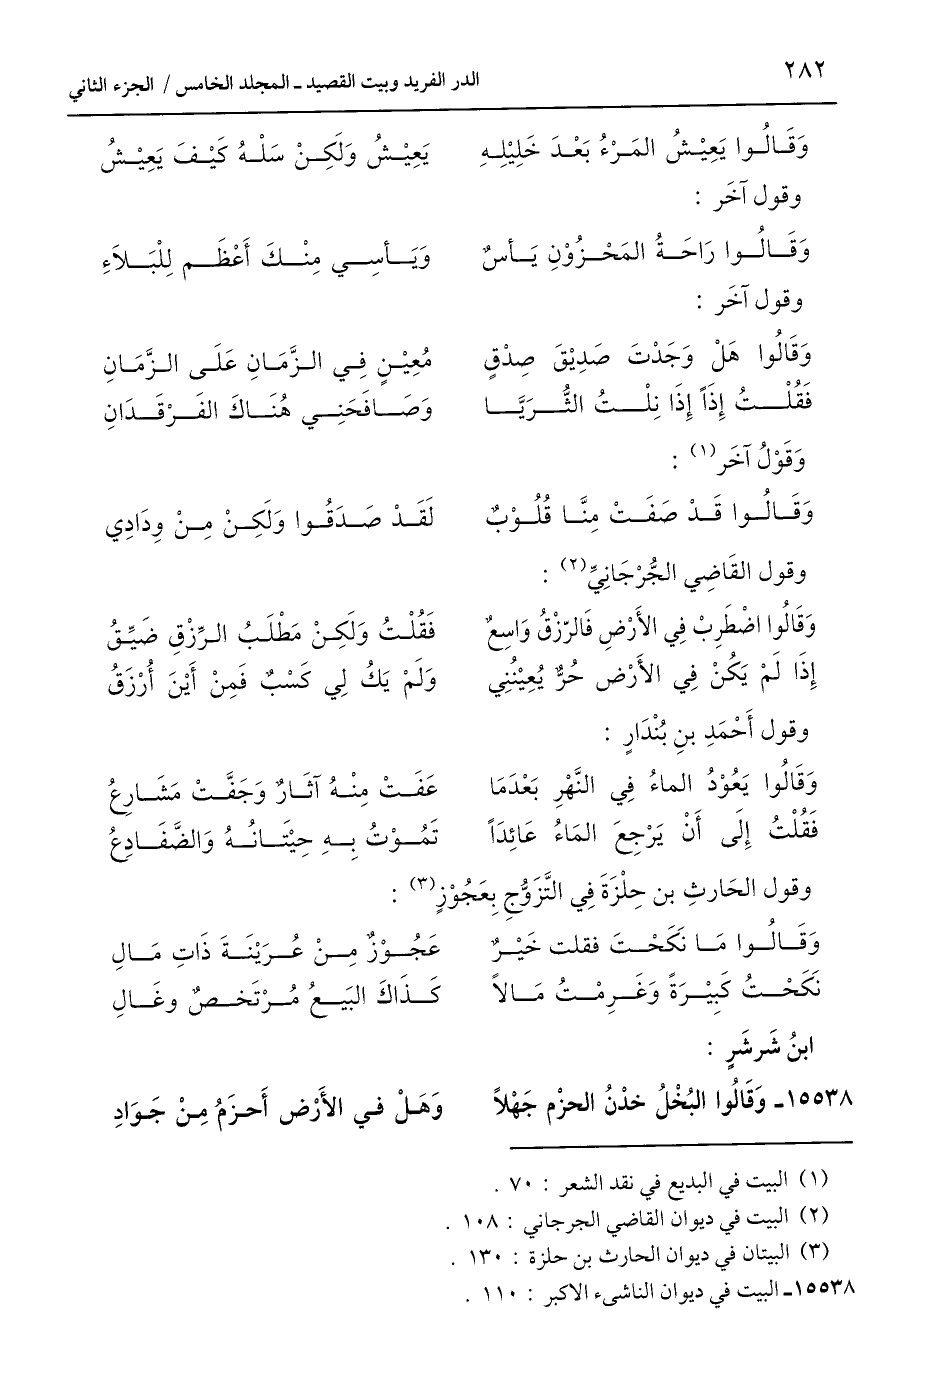 ٢٨٢
الدر الفريد وبيت القصيد ـ المجلد الخامس / الجزء الثاني
وَقَالُوا يَعِيْشُ المَرْءُ بَعْدَ خَلِيْلِهِ يَعِيْشُ وَلَكِنْ سَلْهُ كَيْفَ يَعِيْشُ
وقول آخَر :
وَقَالُوا رَاحَةُ المَحْزُوْنِ يَأسٌ وَيَأسِي مِنْكَ أَعْظَم لِلْبَلاَءِ
وقول آخَر :
وَقَالُوا هَلْ وَجَدْتَ صَدِيْقَ صِدْقٍ مُعِيْنٍ فِي الزَّمَانِ عَلَى الزَّمَانِ
فَقُلْتُ إِذَاً إِذَا نِلْتُ الثُّرَيَّا وَصَافَحَنِي هُنَاكَ الفَرْقَدَانِ
وَقَوْلُ آخَر(١) :
وَقَالُوا قَدْ صَفَتْ مِنَّا قُلُوْبٌ لَقَدْ صَدَقُوا وَلَكِنْ مِنْ وِدَادِي
وقول القَاضِي الجُّرْجَانِيِّ(٢) :
وَقَالُوا اضْطَرِبْ فِي الأَرْضِ فَالرّزْقُ وَاسِعٌ فَقُلْتُ وَلَكِنْ مَطْلَبُ الرِّزْقِ ضَيِّقُ
إِذَا لَمْ يَكُنْ فِي الأَرْضِ حُرٌّ يُعِيْنُنِي وَلَمْ يَكُ لِي كَسْبٌ فَمِنْ أَيْنَ أُرْزَقُ
وقول أَحْمَدِ بنِ بُنْدَارٍ :
وَقَالُوا يَعُوْدُ الماءُ فِي النَّهْرِ بَعْدَمَا عَفَتْ مِنْهُ آثَارٌ وَجَفَّتْ مَشَارِعُ
فَقُلْتُ إِلَى أَنْ يَرْجِعَ المَاءُ عَائِدَاً تَمُوْتُ بِهِ حِيْتَانُهُ وَالضَّفَادِعُ
وقول الحَارثِ بن حِلْزَةَ فِي التَّزَوُّجِ بِعَجُوْزٍ(٣) :
وَقَالُوا مَا نَكَحْتَ فقلت خَيْرٌ عَجُوْزٌ مِنْ عُرَيْنَةَ ذَاتِ مَالِ
نَكَحْتُ كَبِيْرَةً وَغَرِمْتُ مَالاً كَذَاكَ البَيعُ مُرْتَخصٌ وغَالِ
ابنُ شَرشَرٍ :
١٥٥٣٨ـ وَقَالُوا البُخْلُ خدْنُ الحزْم جَهْلاً وَهَلْ في الأَرْض أَحزَمُ مِنْ جَوَادِ
(١) البيت في البديع في نقد الشعر : ٧٠ .
(٢) البيت في ديوان القاضي الجرجاني : ١٠٨ .
(٣) البيتان في ديوان الحارث بن حلزة : ١٣٠ .
١٥٥٣٨ـ البيت في ديوان الناشىء الاكبر : ١١٠ .